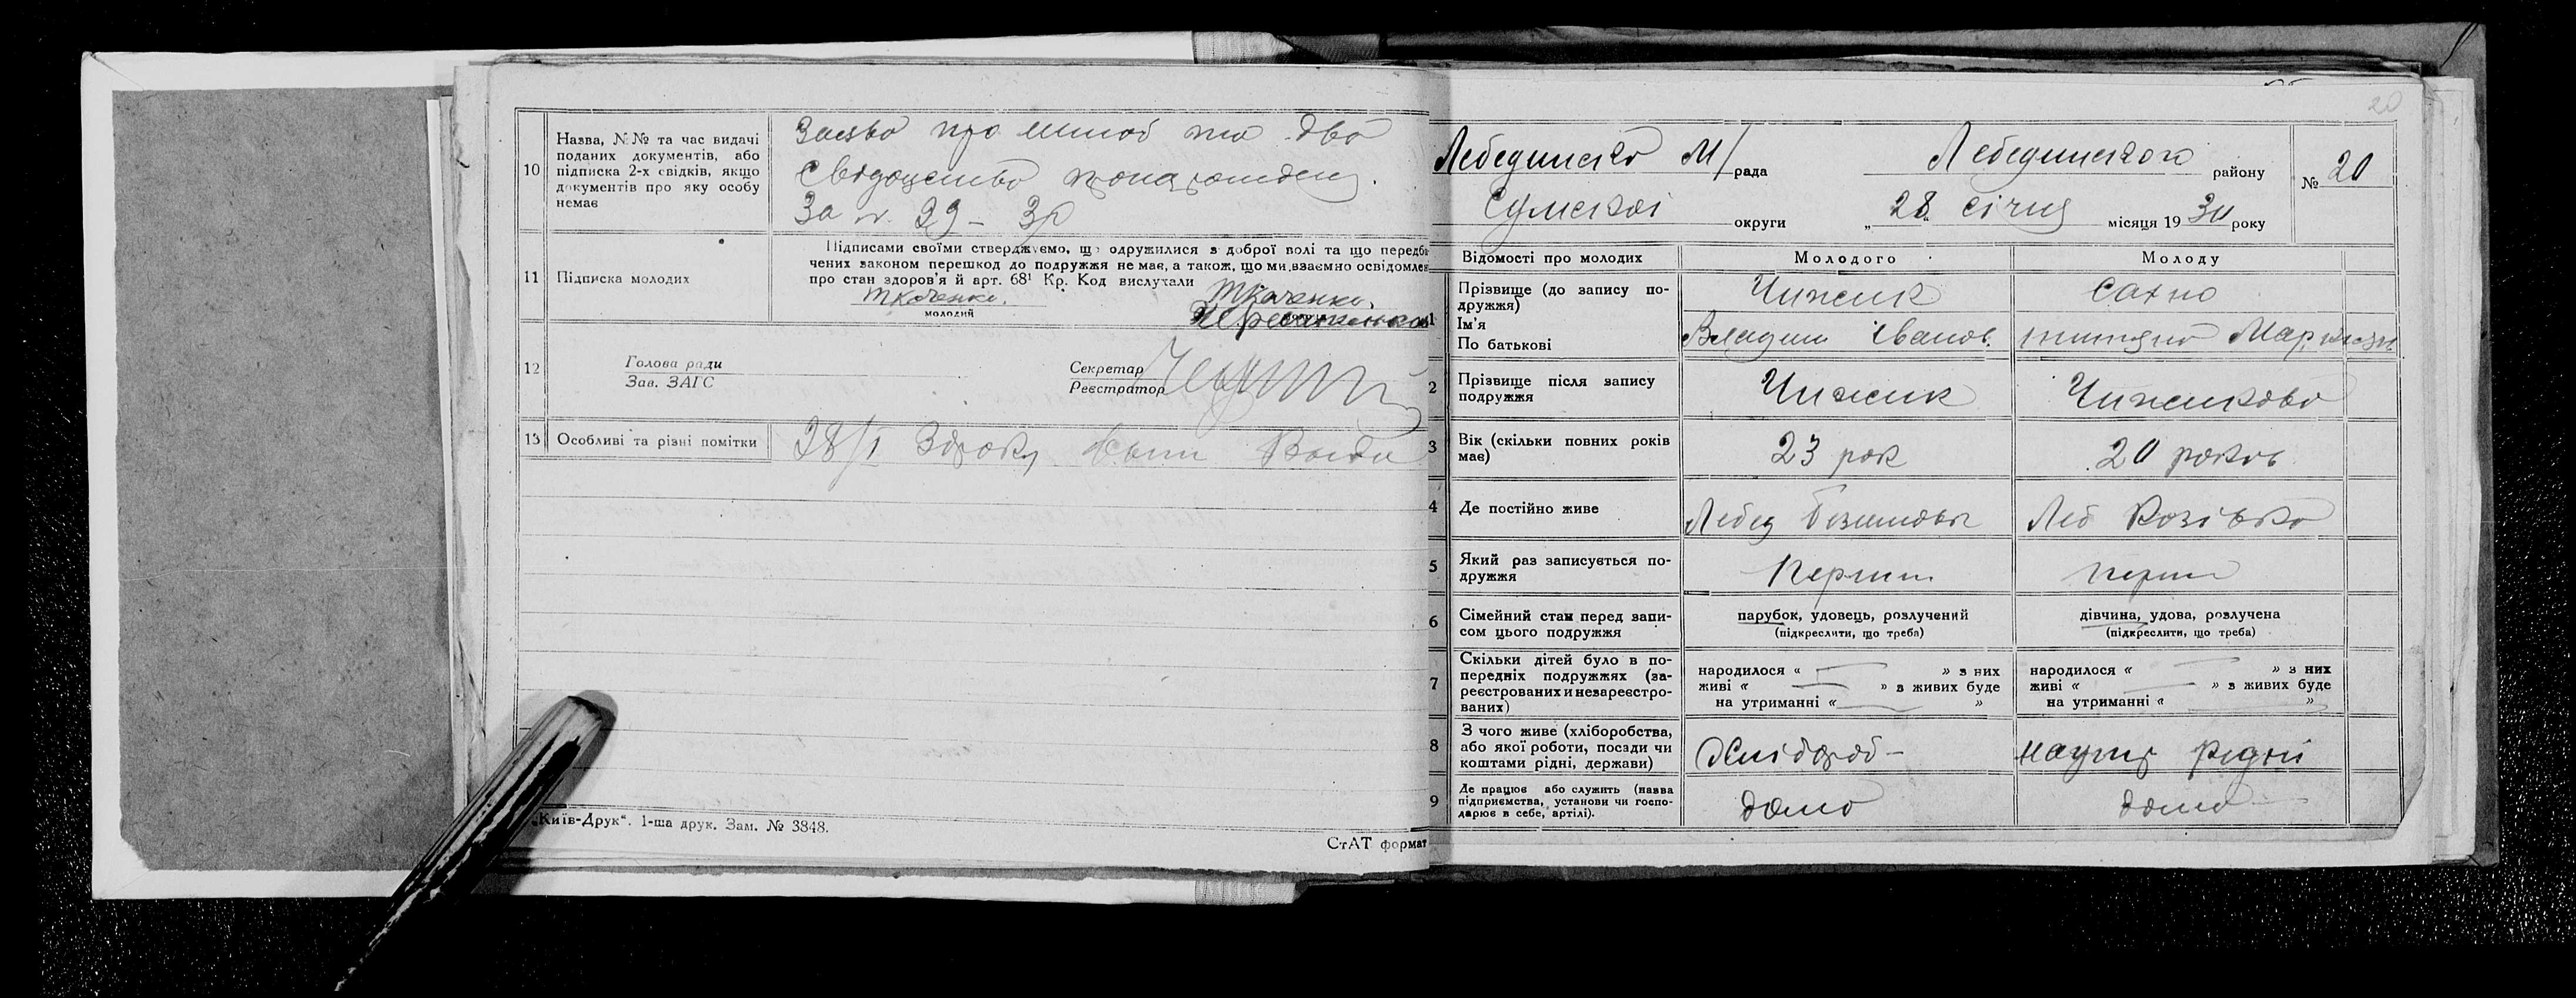 10 Назва, №№ та час видачі поданих документів, або підписка 2-х свідків, якщо документів про яку особу немає
Заява про шлюб та два
свідоцтва
За № 29 – 30
11 Підписка молодих
Підписами своїми стверджуємо, що одружилися з доброї волі та що передба
чених законом перешкод до подружжя немає, а також, що ми взаємно освідомлен
про стан здоров'я й арт. 68¹ Кр. Код вислухали
Ткаченко. Ткаченко.
молодий
12 Голова ради
Зав. ЗАГС
Секретар
Реєстратор
13 Особливі та різні помітки 28/I 30 року
„Київ-Друк“. 1-ша друк. Зам. № 3848.
СтАТ формат
20
Лебединська М/рада Лебединського району № 20
Сумської округи „28“ січня місяця 1930 року
Відомості про молодих Молодого Молоду
1 Прізвище (до запису подружжя) Чижик Сахно
Ім'я
По батькові Іванов.
2 Прізвище після запису подружжя Чижик Чижикова
3 Вік (скільки повних років має) 23 рок 20 років
4 Де постійно живе Лебед Леб
5 Який раз записується подружжя Перший перш
6 Сімейний стан перед записом цього подружжя парубок, удовець, розлучений дівчина, удова, розлучена
(підкреслити, що треба) (підкреслити, що треба)
7 Скільки дітей було в попередніх подружжях (зареєстрованих и незареєстрованих)
народилося « — » з них народилося « — » з них
живі « — » з живих буде живі « — » з живих буде
на утриманні « — » на утриманні « — »
8 З чого живе (хліборобства, або якої роботи, посади чи коштами рідні, держави) Хлібороб – рідні
9 Де працює або служить (назва підприємства, установи чи господарює в себе, артілі). дома дома